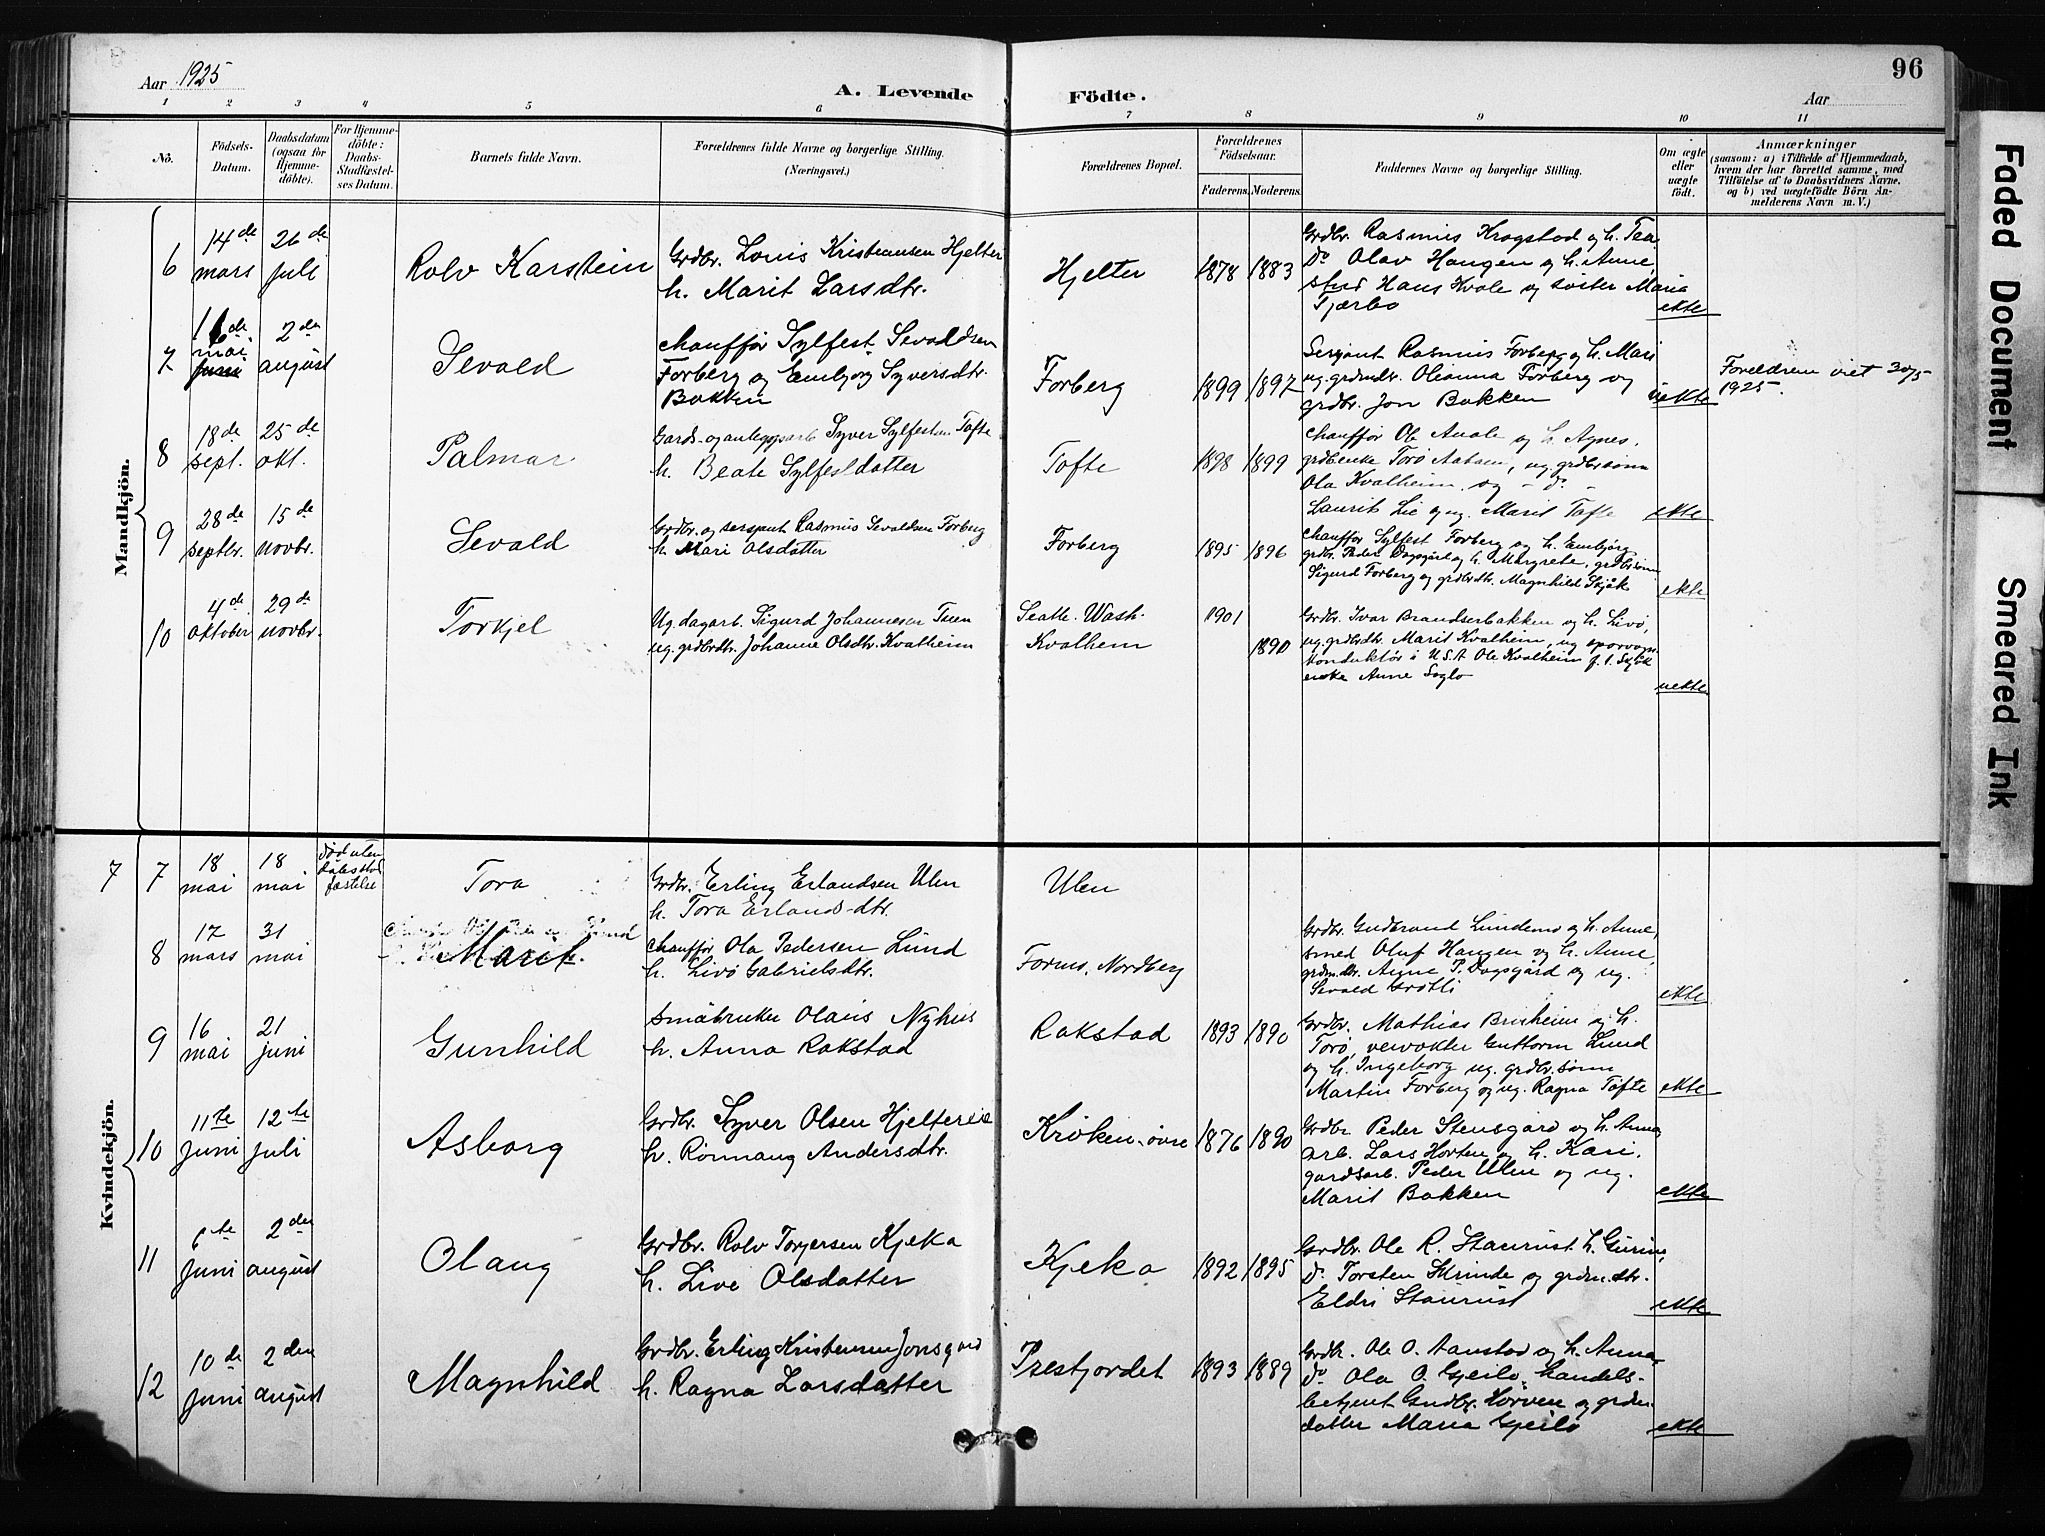 Aar 1925
A. Levende
Födte.
Aar
96
1 2 3 4 5 6 7 8 9 10 11
No.
Födsels-Datum.
Daabsdatum (ogsaa for Hjemme-döbte).
For Hjemme-döbte: Daabs-Stadfæstel-ses Datum.
Barnets fulde Navn.
Forældrenes fulde Navne og borgerlige Stilling.
(Næringsvei.)
Forældrenes Bopæl.
Forældrenes Födselsaar.
Faderens. Moderens.
Faddernes Navne og borgerlige Stilling.
Om ægte eller uægte födt.
Anmærkninger
(saasom: a) i Tilfælde af Hjemmedaab,
hvem der har forrettet samme, med
Tilföielse af to Daabsvidners Navne,
og b) ved uægtefödte Börn An-
melderens Navn m. V.)
Mandkjön.
6 14de mars 26de juli Rolv Karstein
Grdbr. Louis Kristiansen Hjelter
h. Marit Larsdtr.
Hjelter 1878 1883
Grdbr. Rasmus Krogstad og h. Tea
Do Olav Haugen og h. Anne,
stud Hans Kvale og søster Maria
Tjærbo
ekte
7 16de mai juni 2den august Sevald
Chauffør Sylfest Sevaldsen
Forberg og Embjørg Syversdtr.
Bakken
Forberg 1899 1897
Sersjant Rasmus Forberg og h. Mari
ug. grdmdtr. Olianna Forberg og
grdbr. Jon Bakken
uekte
Foreldrene viet 30/5
1925.
8 18de sept. 25de okt. Palmar
Gards- og anleggsarb. Syver Sylfesten Tofte
h. Beate Sylfestdatter
Tofte 1898 1899
Chauffør Ole Aaale og h. Agnes,
grdbenke Torø Aabam, ug. grdbrsønn
Ola Kvalheim, og - do -
Laurits Lie og ug. Marit Tofte
ekte
9 28de septbr. 15de novbr. Sevald
Grdbr. og sersjant Rasmus Sevaldsen Forberg
h. Mari Olsdatter
Forberg 1895 1896
Chauffør Sylfest Forberg og h. Embjørg
grdbr. Peder Dagsgård og h. Margrete, grdbrsønn
Sigurd Forberg og grdbrdtr. Magnhild Skjåk
ekte
10 4de oktober 29de novbr. Torkjel
Ug. dagarb. Sigurd Johannesen Tuen
ug. grdbrdtr. Johanne Olsdtr. Kvalheim
Seatle. Wash. 1901
Kvalheim 1890
Grdbr. Ivar Brandserbakken og h. Livø,
ug. grdbrdtr. Marit Kvalheim, ug sporvogn
konduktør i U.S.A Ole Kvalheim f. t. Skjåk
enke Anne Soglo
uekte
Kvindekjön.
7 7 18 mai 18 mai død uten dåbsstadfestelse Tora
Grdbr. Erling Erlandsen Ulen
h. Tora Erlandsdtr.
Ulen
8 17 mars 31 mai Marit.
Chauffør Ola Pedersen Lund
h. Livø Gabrielsdtr.
Formo, Nordberg
Grdbr. Gudbrand Lundemo og h. Anne,
smed Oluf Haugen og h. Anne,
grdm.dtr. Aigne P. Dagsgård og ug.
Sevald Grøtli
ekte
9 16 mai 21 juni Gunhild
Småbruker Olaus Nyhus
h. Anna Rakstad
Rakstad 1893 1890
Grdbr. Mathias Bruheim og h.
Torø, veivokter Guttorm Lund
og h. Ingeborg ug. grdbr.sønn
Martin Forberg og ug. Ragna Tofte
ekte
10 11te juni 12te juli Asborg
Grdbr. Syver Olsen Hjeltereie
h. Rønnaug Andersdtr.
Krøken-øvre 1876 1890
Grdbr Peder Stensgård og h. Anna
arb. Lars Horten og h. Kari,
gardsarb. Peder Ulen og ug.
Marit Bakken
ekte
11 6te juni 2den august Olaug
Grdbr. Rolv Torgersen Kjeka
h. Live Olsdatter
Kjeka 1892 1895
Grdbr. Ole R. Staurust h. Gurine,
do Torsten Skrinde og grdm.dtr.
Eldri Staurust
ekte
12 10de juni 2den august Magnhild
Grdbr. Erling Kristensen Jonsgård
h. Ragna Larsdatter
Prestjordet 1893 1889
Grdbr. Ole O. Aanstad og h. Anna,
do Ola O. Gjeilo, handels-
betjent Gudbr. Hørven og grdm
datter Maria Gjeilo
ekte
Faded Document
Smeared Ink